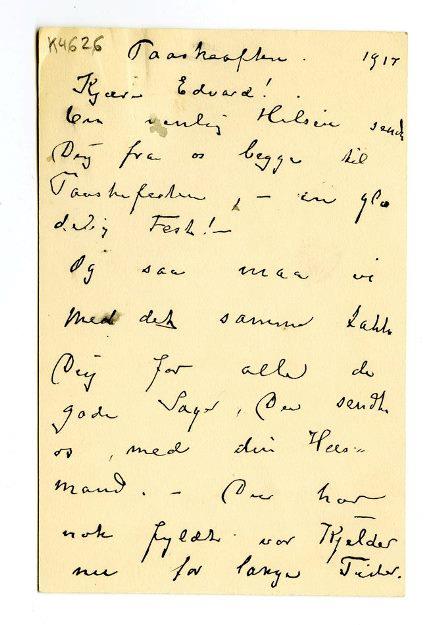 K4626
Paaskeaften. 1917
Kjære Edvard!
En venlig Hilsen sendes
Dig fra os begge til
Paaskefesten, – en glæ
delig Fest! –
Og saa maa vi
med det samme takke
Dig for alle de
gode Sager, Du sendte
os, med din Hus-
mand. – Du har
nok fyldt vor Kjelder
nu for lange Tider.